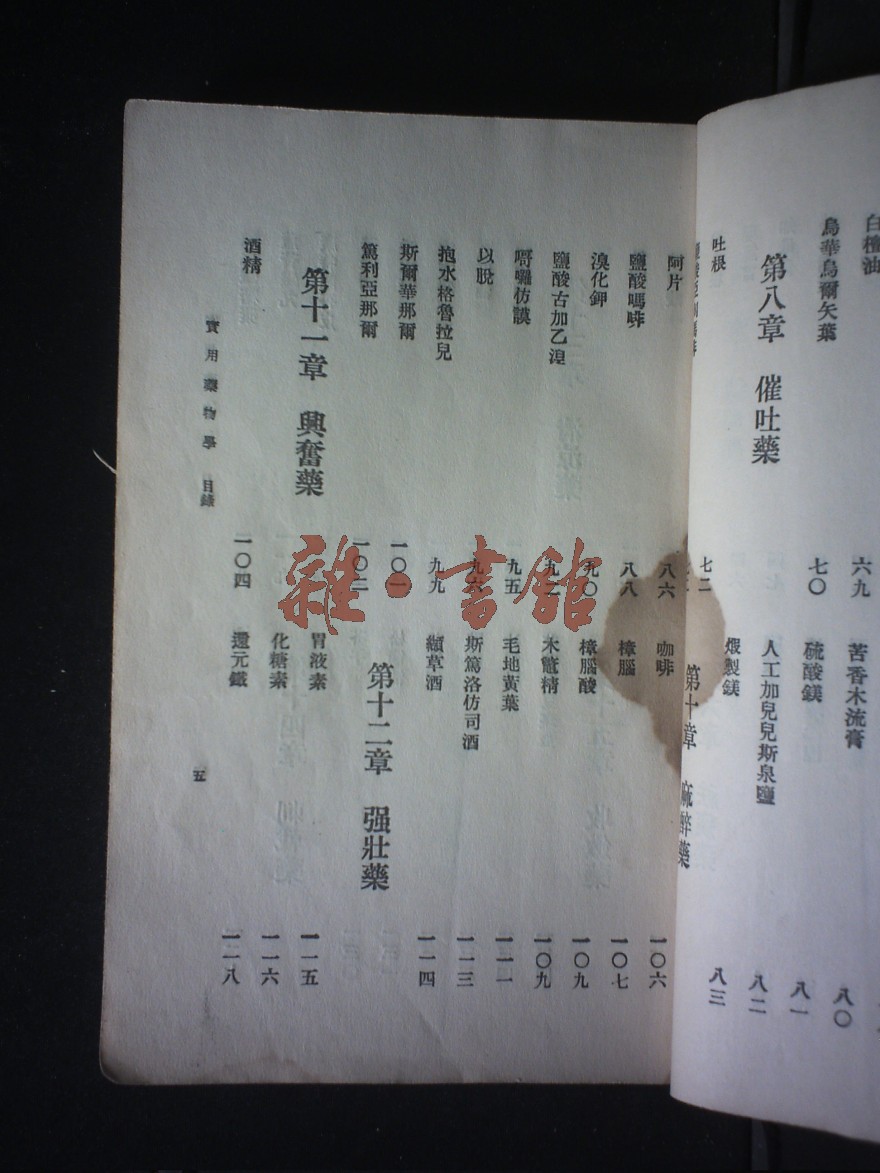 白檀油 六九
烏華烏爾矢葉 七〇
第八章 催吐藥
吐根 七二
苦香木流膏 八〇
硫酸鎂 八一
人工加兒兒斯泉鹽 八二
煅製鎂 八三
第十章 麻醉藥
阿片 八六
鹽酸嗎啡 八八
溴化鉀 九〇
鹽酸古加乙湼 九二
仿謨 九五
以脫 九六
抱水格魯拉兒 九九
斯爾華那爾 一〇一
篤利亞那爾 一〇二
第十一章 興奮藥
酒精 一〇四
咖啡 一〇六
樟腦 一〇七
樟腦酸 一〇九
木鼈精 一〇九
毛地黄葉 一一一
斯篤洛仿司酒 一一三
纈草酒 一一四
第十二章 强壯藥
胃液素 一一五
化糖素 一一六
還元鐵 一一八
實用藥物學 目錄
五
雜·書館